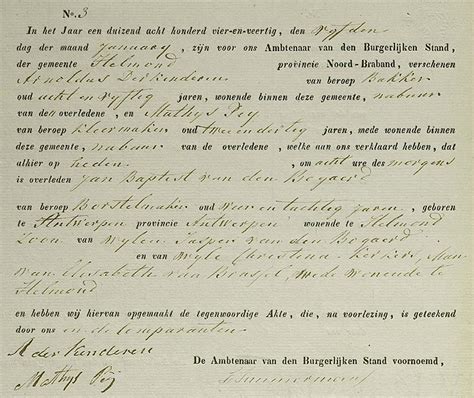 No. 3
In het Jaar een duizend acht honderd vier-en-veertig, den vyfden
dag der maand January, zijn voor ons Ambtenaar van den Burgerlijken Stand,
der gemeente Helmond provincie Noord-Braband, verschenen
Arnoldus Derkinderen van beroep Bakker
oud acht en vyftig jaren, wonende binnen deze gemeente, nabuur
van den overledene, en Mathys Pey
van beroep kleermaker oud twee en dertig jaren, mede wonende binnen
deze gemeente, nabuur van de overledene, welke aan ons verklaard hebben, dat
alhier op heden, om acht ure des morgens
is overleden Jan Baptest van den Bogaerd
van beroep Borstelmaker oud en tachtig jaren, geboren
te Antwerpen provincie Antwerpen wonende te Helmond
Zoon van Wylen Jasper van den Bogaerd
en van Wyle Christina Kerkers, Man
van Elisabeth van Bragsel, mede wonende te
Helmond
en hebben wij hiervan opgemaakt de tegenwoordige Akte, die, na voorlezing, is geteekend
door ons en de Comparanten.
A der kinderen
De Ambtenaar van den Burgerlijken Stand voornoemd,
Mathys Pey